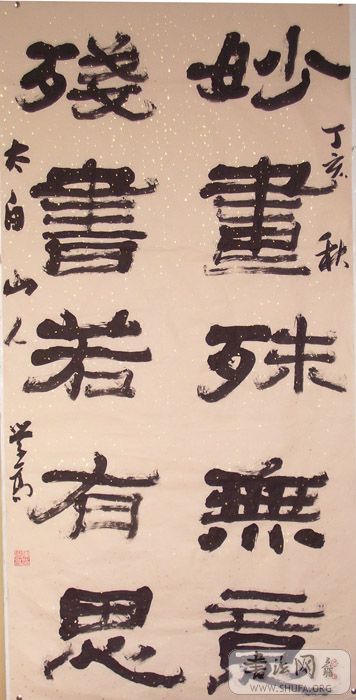 丁亥秋
妙畫殊無意
殘書若有思
太白山人
書法网
WWW.SHUFA.ORG